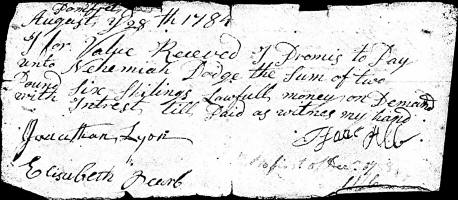 Pomfret
August, ye 28th 1784
I for Value Received I Promis to Pay
unto Nehemiah Dodge the Sum of two
Pound Six Shilings Lawfull money on Demand
with Intrest till Paid as witnes my hand
Jonathan Lyon
Isaac
Elisabeth Pearl